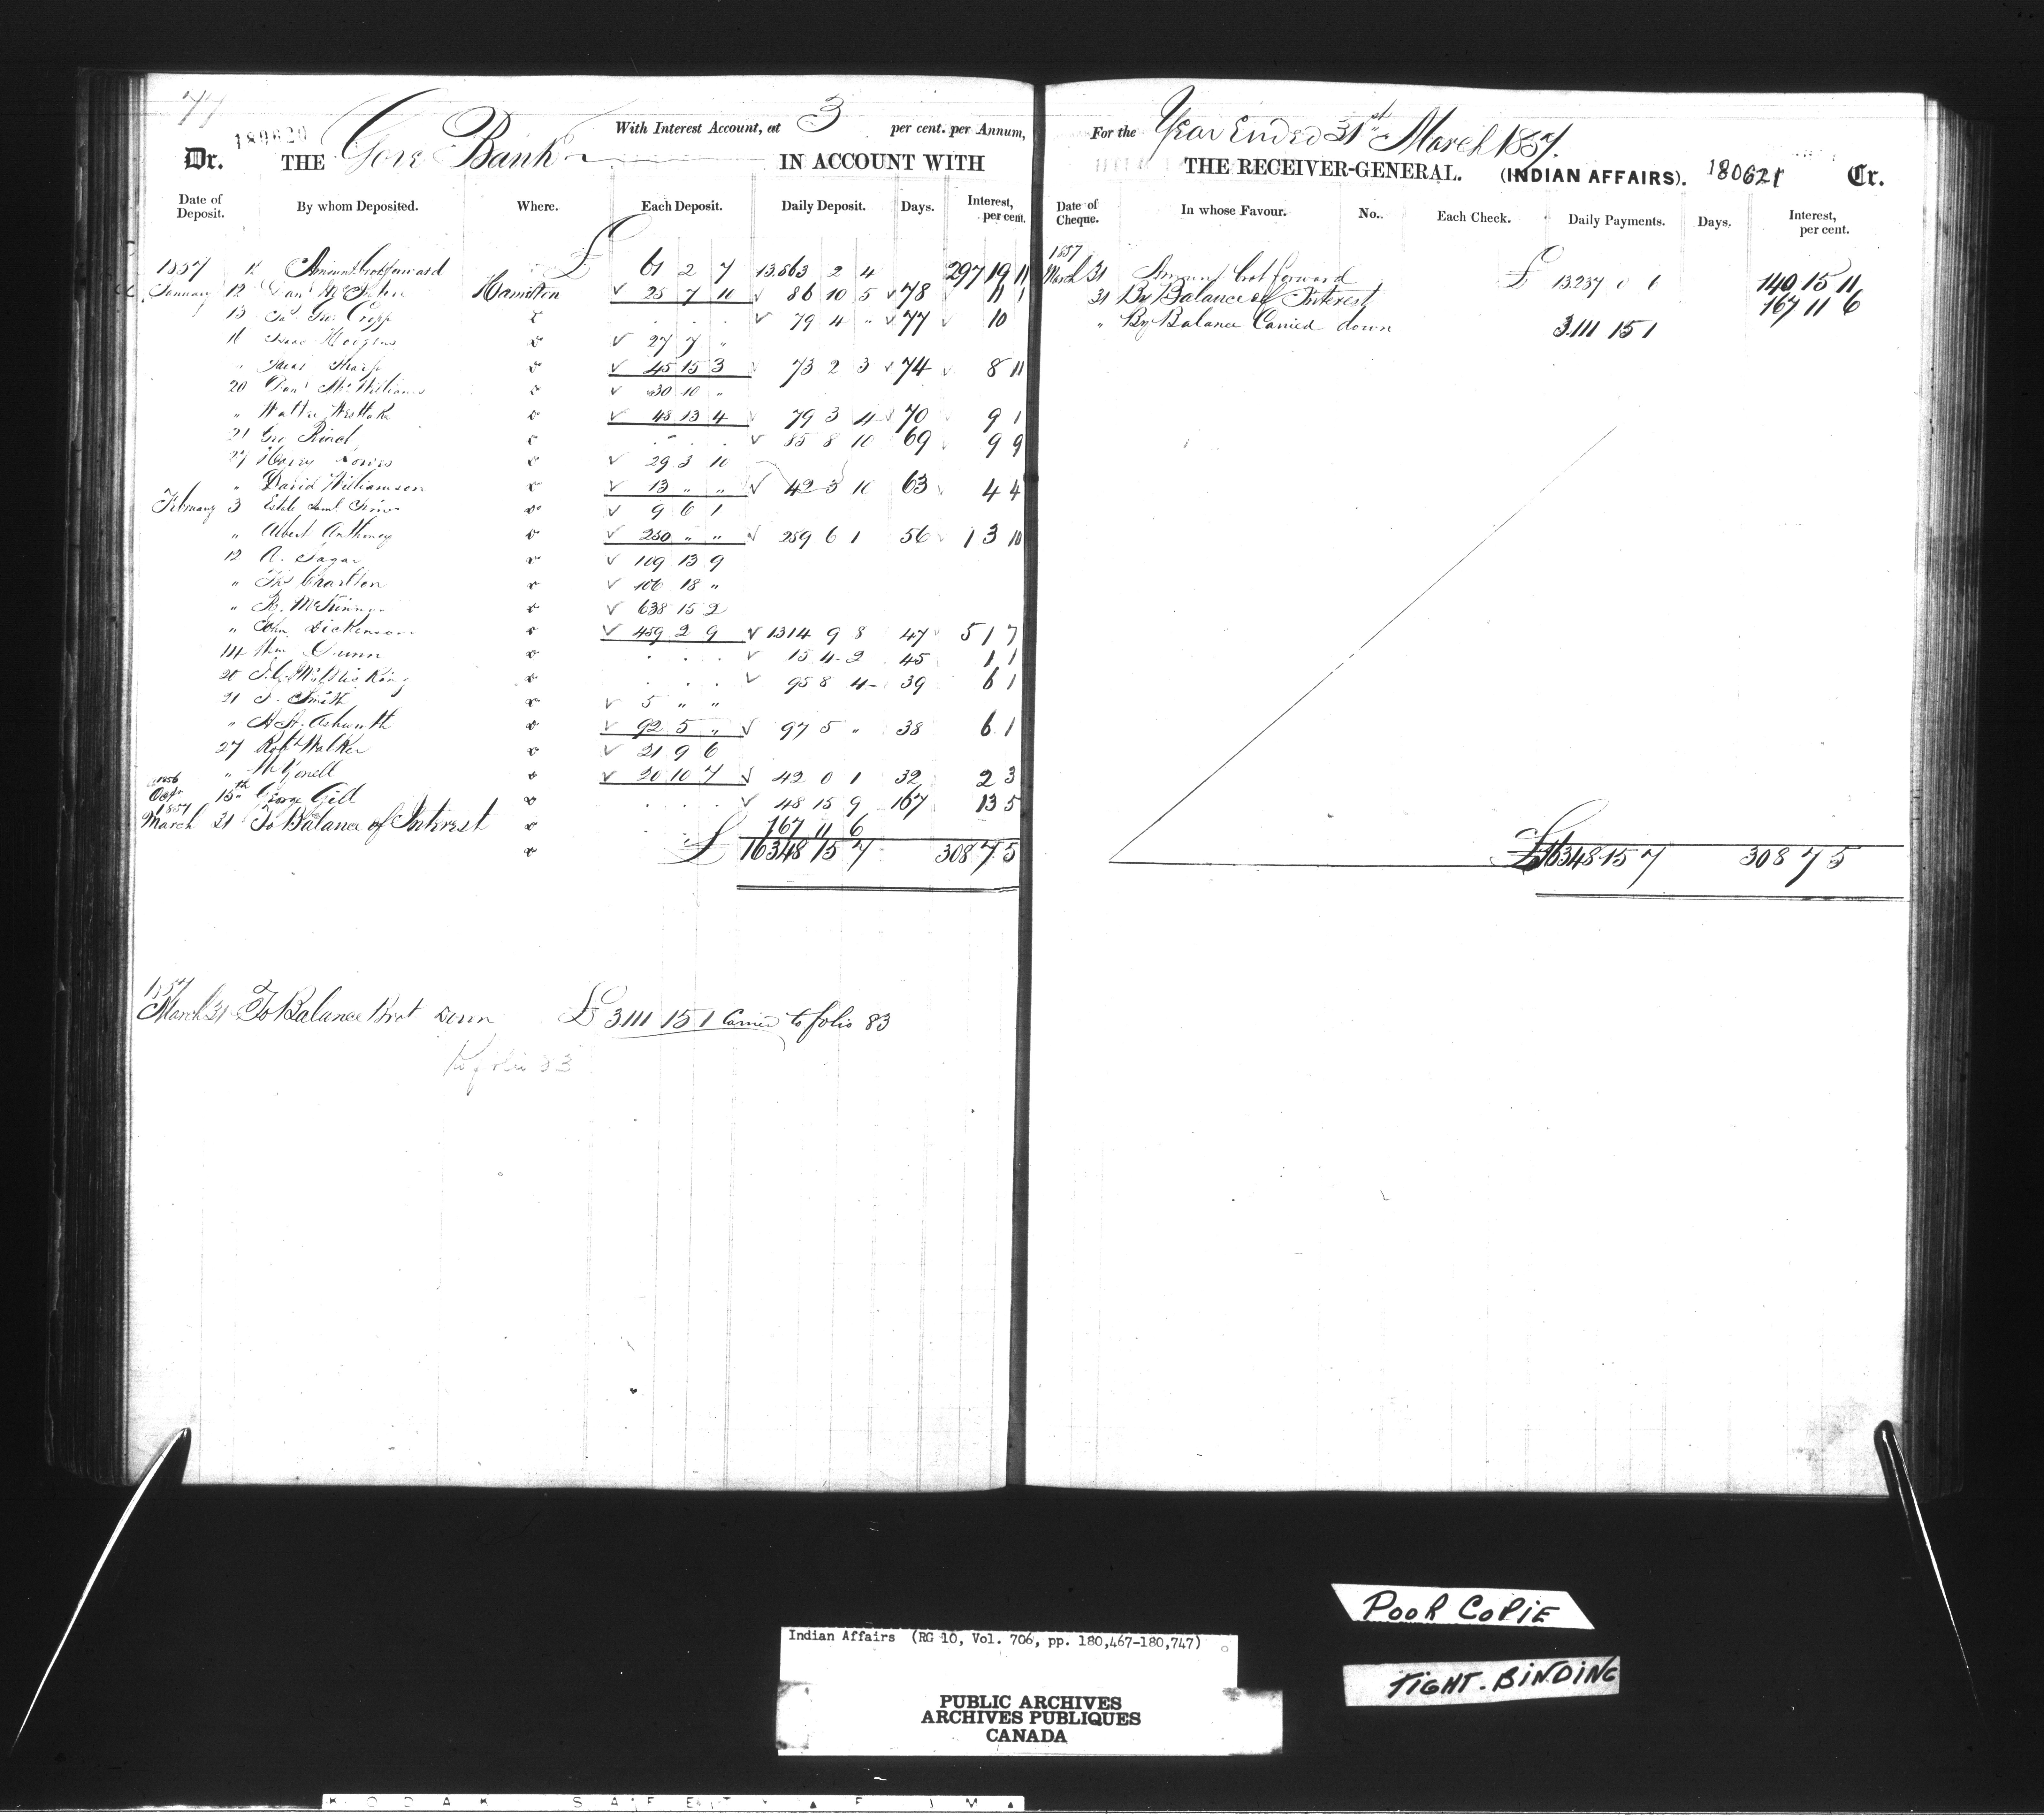 77
180620
Gore Bank
With Interest Account, at 3 per cent. per Annum,
Dr. THE IN ACCOUNT WITH
Date of Deposit. By whom Deposited. Where. Each Deposit. Daily Deposit. Days. Interest, per cent.
1857 Amount brot forward £ 61 2 7 13.563 2 4 297 19 11
January 12 Hamilton 25 7 10 86 10 5 78 11 1
13 Cropp 79 4 " 77 10
Isaac Hodgins 27 7 "
" Sharp 45 15 3 73 2 3 74 8 11
20 Danl McWilliams 30 10 "
" Walter Westlake 48 13 4 79 3 4 70 9 1
21 Geo 85 8 10 69 9 9
27 Henry 29 3 10
" David Williamson 13 " " 42 3 10 63 4 4
February 3 Estate Saml 9 6 1
" Albert Anthony 250 " " 259 6 1 56 1 3 10
12 A. Sagar 109 13 9
" Thos Charlton 106 18 "
" R. McKinnon 638 15 2
" John Dickenson 459 2 9 1314 9 8 47 5 1 7
14 Wm Dunn 15 4 2 45 1 1
20 95 8 4 39 6 1
21 J. Smith 5 " "
" A. A. Ashworth 92 5 " 97 5 " 38 6 1
27 Robt Walker 21 9 6
" 20 10 7 42 0 1 32 2 3
1856 Octr 15th George Gill 48 15 9 167 13 5
1857 March 31 To Balance of Interest 167 11 6
£ 16348 15 7 308 7 5
1857
March 31 To Balance Brot Down £ 3111 15 1 Carried to folio 83
To folio 83
For the Year Ended 31st March 1857.
THE RECEIVER-GENERAL. (INDIAN AFFAIRS). 180621 Cr.
Date of Cheque. In whose Favour. No. Each Check. Daily Payments. Days. Interest, per cent.
1857
March 31 Amount brot forward £ 13.237 0 6 140 15 11
31 By Balance of Interest 167 11 6
" By Balance Carried down 3.111 15 1
£16348 15 7 308 7 5
POOR COPIE
TIGHT-BINDING
Indian Affairs (RG 10, Vol. 706, pp. 180,467-180,747)
PUBLIC ARCHIVES
ARCHIVES PUBLIQUES
CANADA
KODAK SAFETY FILM